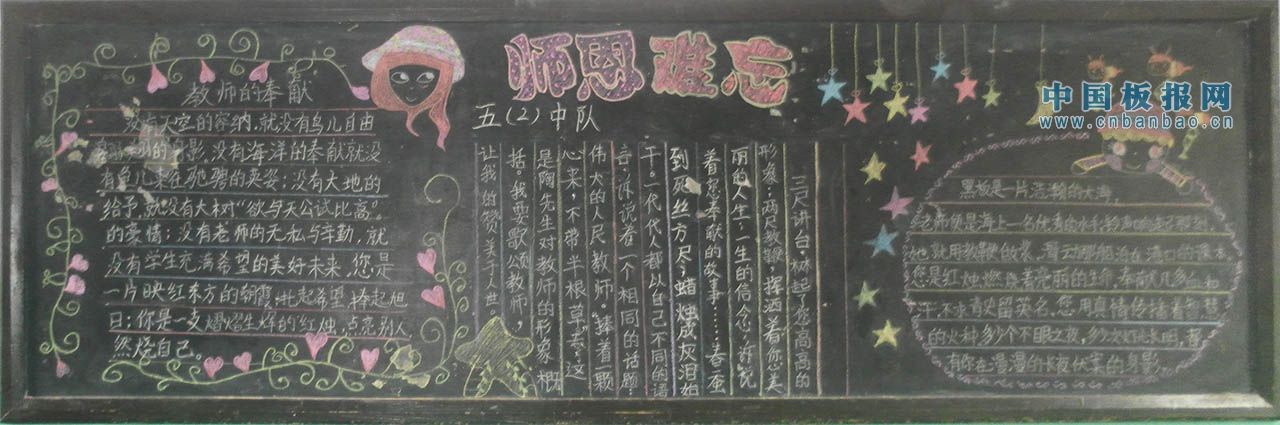 师恩难忘
五(2)中队
中国板报网
www.cnbanbao.cn
教师的奉献
没有天空的容纳,就没有鸟儿自由
的身影。没有海洋的奉献就没
有鱼儿来往驰骋的英姿;没有大地的
给予,就没有大树“欲与天公试比高”
的豪情;没有老师的无私与辛勤,就
没有学生充满希望的美好未来,您是
一片映红东方的朝霞,托起希望,捧起旭
日;你是一支熠熠生辉的红烛,点亮别人
燃烧自己。
三尺讲台,撑起了您高高的
形象,两尺教鞭,挥洒着您美
丽的人生;一生的信念,诉说
着默默奉献的故事……春蚕
到死丝方尽,蜡烛成灰泪始
干。一代代人都以自己不同的语
言,诉说着一个相同的话题:
伟大的人民教师。“捧着一颗
心来,不带半根草去”,这
是陶先生对教师的形象概
括。我要歌颂教师,
让我的赞美于人世。
黑板是一片浩瀚的大海,
老师便是海上一名优秀的水手,铃声响起
您是红烛,燃烧着亮丽的生命,奉献几多
汗,不求青史留英名,您用真情传播着智慧
的火种,多少个不眠之夜,多少次
有你在漫漫的长夜伏案的身影